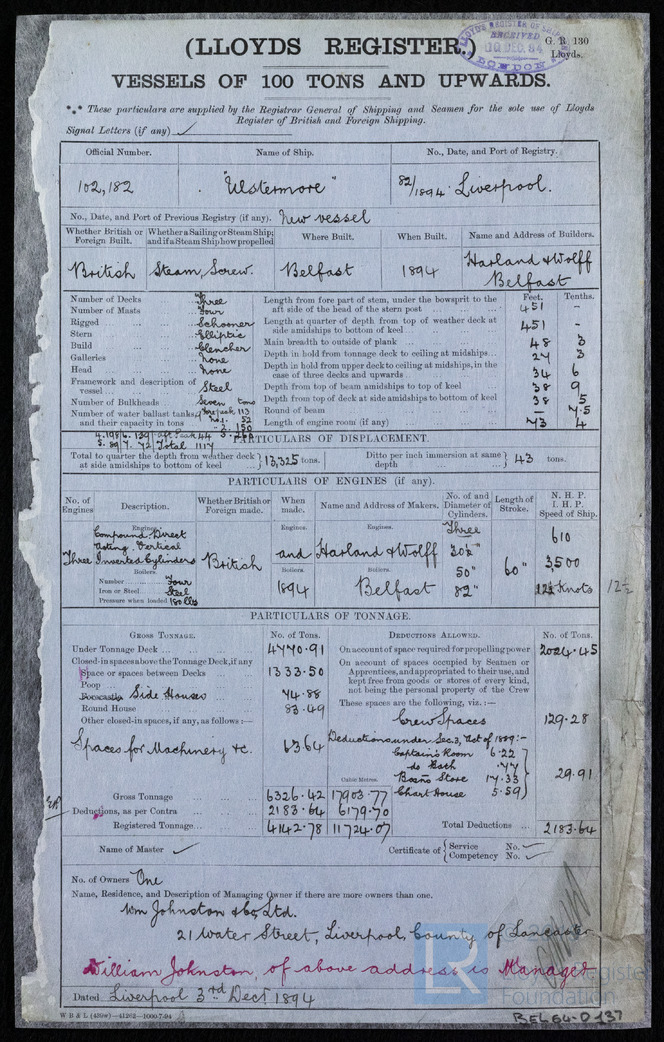 (LLOYDS REGISTER.)
LLOYD'S REGISTER OF SHIPPING
RECEIVED
DEC. 94
LONDON
G. R. 130
Lloyds.
VESSELS OF 100 TONS AND UPWARDS.
*** These particulars are supplied by the Registrar General of Shipping and Seamen for the sole use of Lloyds
Register of British and Foreign Shipping.
Signal Letters (if any) ✓
Official Number. Name of Ship. No., Date, and Port of Registry.
102,182 "Ulstermore" 82/1894 Liverpool.
No., Date, and Port of Previous Registry (if any). New vessel
Whether British or Foreign Built. Whether a Sailing or Steam Ship; and if a Steam Ship how propelled Where Built. When Built. Name and Address of Builders.
British Steam, Screw. Belfast 1894 Harland & Wolff Belfast
Feet. Tenths.
Number of Decks Three
Number of Masts Four
Rigged Schooner
Stern Elliptic
Build Clencher
Galleries None
Head None
Framework and description of vessel Steel
Number of Bulkheads Seven
Number of water ballast tanks, and their capacity in tons
tons
Total 1117
Length from fore part of stem, under the bowsprit to the aft side of the head of the stern post 451 –
Length at quarter of depth from top of weather deck at side amidships to bottom of keel 451 –
Main breadth to outside of plank 48 3
Depth in hold from tonnage deck to ceiling at midships 27 3
Depth in hold from upper deck to ceiling at midships, in the case of three decks and upwards 34 6
Depth from top of beam amidships to top of keel 38 9
Depth from top of deck at side amidships to bottom of keel 38 5
Round of beam – 7.5
Length of engine room (if any) 73 4
PARTICULARS OF DISPLACEMENT.
Total to quarter the depth from weather deck at side amidships to bottom of keel 13,325 tons. Ditto per inch immersion at same depth 43 tons.
PARTICULARS OF ENGINES (if any).
No. of Engines Description. Whether British or Foreign made. When made. Name and Address of Makers. No. of and Diameter of Cylinders. Length of Stroke. N. H. P. I. H. P. Speed of Ship.
Engines. Engines. Engines.
Three Compound Direct Acting Vertical Inverted Cylinders British and 1894 Harland & Wolff Belfast
Three
30½"
50"
82"
60"
610
3,500
12½ Knots
12½
Boilers. Boilers. Boilers.
Number Four
Iron or Steel Steel
Pressure when loaded 180 lbs
PARTICULARS OF TONNAGE.
GROSS TONNAGE. No. of Tons. DEDUCTIONS ALLOWED. No. of Tons.
Under Tonnage Deck 4770.91
Closed-in spaces above the Tonnage Deck, if any
Space or spaces between Decks 1333.50
Poop
Forecastle Side Houses 74.88
Round House 83.49
Other closed-in spaces, if any, as follows :—
Spaces for Machinery &c. 63.64
On account of space required for propelling power 2024.45
On account of spaces occupied by Seamen or Apprentices, and appropriated to their use, and kept free from goods or stores of every kind, not being the personal property of the Crew
These spaces are the following, viz. :—
Crew Spaces 129.28
Deductions under Sec. 3, Act of 1889:-
Captain's Room 6.22
do Bath .77
Boatn's Store 17.33
Chart House 5.59
29.91
Cubic Metres.
Gross Tonnage 6326.42 17903.77
Deductions, as per Contra 2183.64 6179.70
Registered Tonnage 4142.78 11724.07
Total Deductions 2183.64
Name of Master ✓
Certificate of { Service No.
Competency No.
No. of Owners One
Name, Residence, and Description of Managing Owner if there are more owners than one.
Wm Johnston & Co Ltd.
21 Water Street, Liverpool, County of Lancaster
William Johnston, of above address is Manager
Dated Liverpool 3rd Decr 1894
LR
Lloyd's Register
Foundation
W B & L (439w)—41262—1000-7-94
BEL64-D137